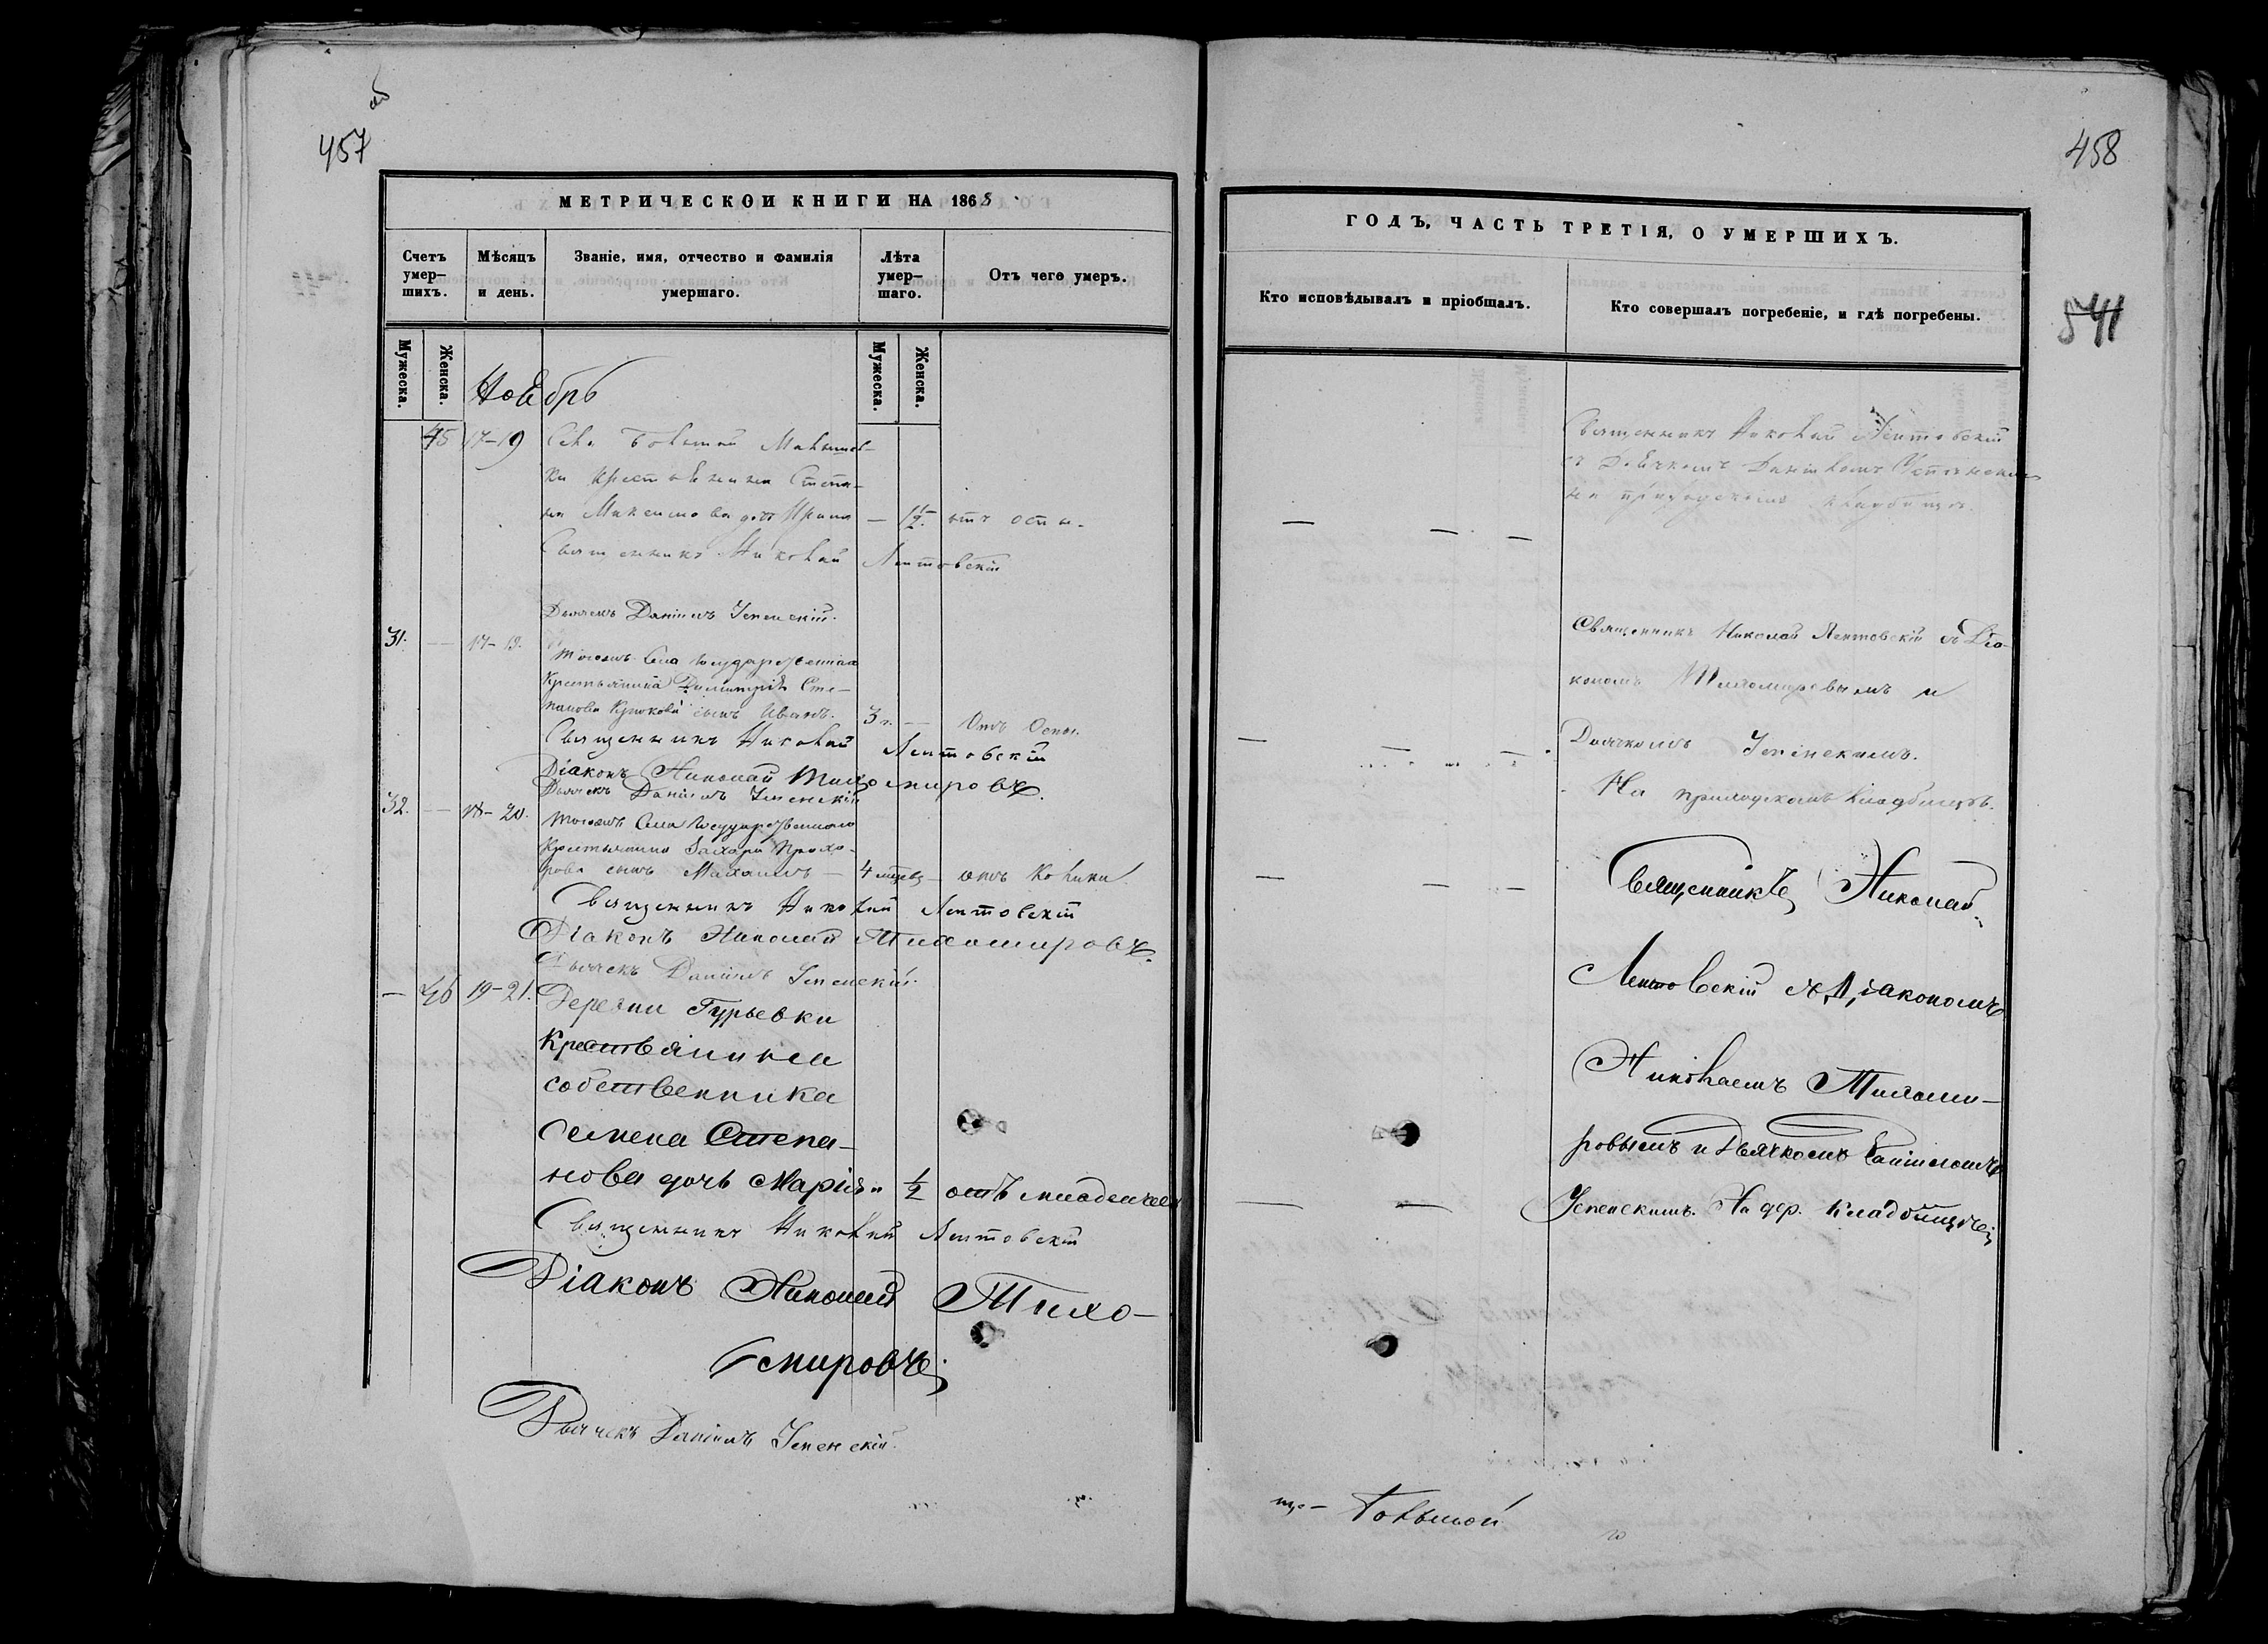 об
457
МЕТРИЧЕСКОЙ КНИГИ НА 1868
Счетъ умер-шихъ.
Мѣсяцъ и день.
Званіе, имя, отчество и фамилія умершаго.
Лѣта умер-шаго.
Отъ чего умеръ.
Мужеска.
Женска.
Мужеска.
Женска.
Ноябрь
45 17-19 Села Большой
ки крестьянина Степа-
на Максимова дочь Ирина — 1/2 отъ оспы.
Священникъ Николай Лентовскій
Дьячекъ Даніилъ Успенскій.
31. — 17-19.
Тогожъ села Государственнаго
Крестьянина Димитрія Сте-
панова сынъ Иванъ. 3 г. — Отъ Оспы.
Священникъ Николай Лентовскій
Діаконъ Николай Тихомировъ.
Дьячекъ Даніилъ Успенскій
32. — 18-20. Тогожъ Села Государственнаго
Крестьянина Захара Прохо-
рова сынъ — 4 — отъ
Священникъ Николай Лентовскій
Діаконъ Николай Тихомировъ.
Дьячекъ Даніилъ Успенскій.
— 46 19-21. Деревни Гурьевки
Крестьянина
собственника
Семена Степа-
нова дочь Марія 1/2 отъ младенческ
Священникъ Николай Лентовскій
Діаконъ Николай Тихо-
мировъ.
Дьячекъ Даніилъ Успенскій.
458
541
ГОДЪ, ЧАСТЬ ТРЕТІЯ, О УМЕРШИХЪ.
Кто исповѣдывалъ и пріобщалъ.
Кто совершалъ погребеніе, и гдѣ погребены.
Священникъ Николай Лентовскій
съ Дьячкомъ Даніиломъ Успенским
на приходскомъ кладбищѣ.
Священникъ Николай Лентовскій съ Діа-
кономъ Тихомировымъ и
Дьячкомъ Успенскимъ.
На приходскомъ кладбищѣ.
Священникъ Николай
Лентовскій съ Діакономъ
Николаемъ Тихоми-
ровымъ и Дьячкомъ Даніиломъ
Успенскимъ. На дер. кладбищѣ
Большой